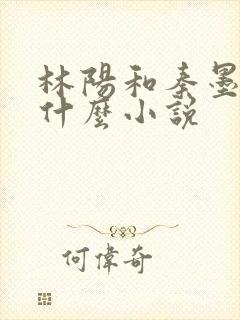 林陽和秦墨
什麼小說
何偉奇